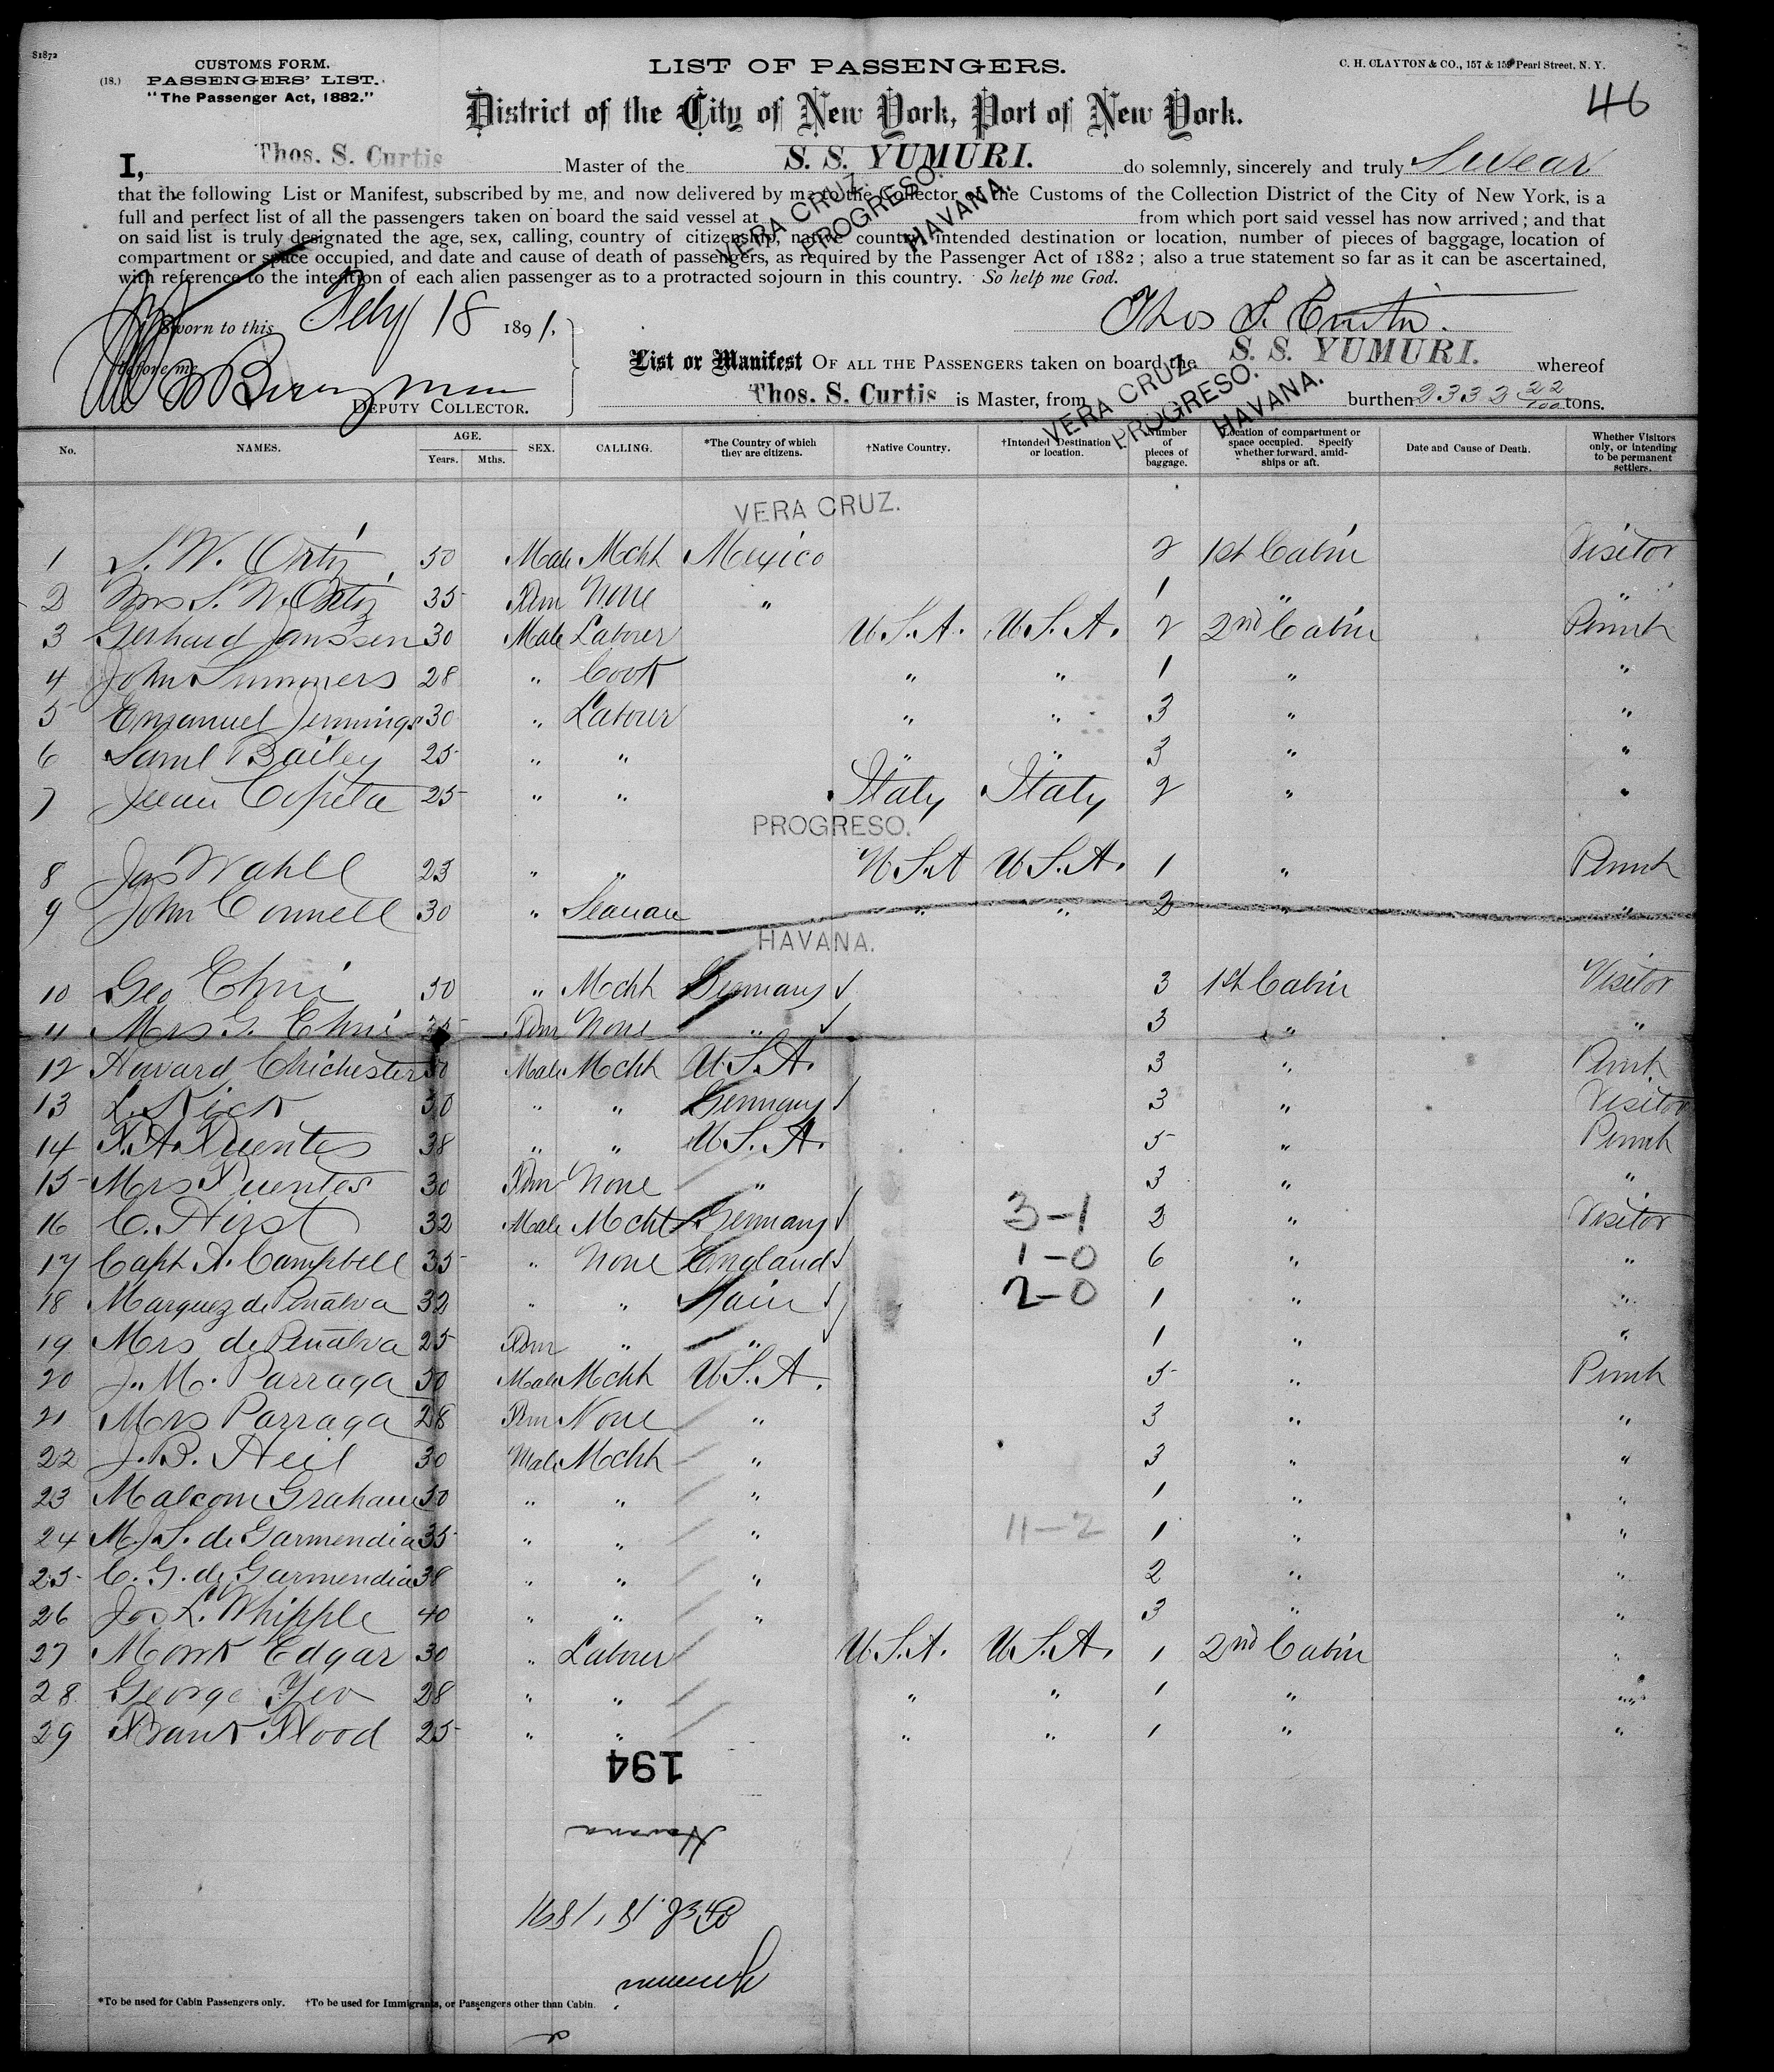 S1872
CUSTOMS FORM.
(18.) PASSENGERS' LIST.
"The Passenger Act, 1882."
LIST OF PASSENGERS.
C. H. CLAYTON & CO., 157 & 159 Pearl Street, N. Y.
46
District of the City of New York, Port of New York.
I, Thos. S. Curtis Master of the S. S. YUMURI. do solemnly, sincerely and truly Swear
that the following List or Manifest, subscribed by me, and now delivered by me to the Collector of the Customs of the Collection District of the City of New York, is a
full and perfect list of all the passengers taken on board the said vessel at VERA CRUZ. PROGRESO. HAVANA. from which port said vessel has now arrived; and that
on said list is truly designated the age, sex, calling, country of citizenship, native country, intended destination or location, number of pieces of baggage, location of
compartment or space occupied, and date and cause of death of passengers, as required by the Passenger Act of 1882; also a true statement so far as it can be ascertained,
with reference to the intention of each alien passenger as to a protracted sojourn in this country. So help me God.
Sworn to this Feby 18 1891.
Thos S. Curtis.
before me
DEPUTY COLLECTOR.
List or Manifest OF ALL THE PASSENGERS taken on board the S. S. YUMURI. whereof
Thos. S. Curtis is Master, from VERA CRUZ. PROGRESO. HAVANA. burthen 2332 22/100 tons.
No. NAMES. AGE. Years. Mths. SEX. CALLING. *The Country of which they are citizens. †Native Country. †Intended Destination or location. Number of pieces of baggage. Location of compartment or space occupied. Specify whether forward, amidships or aft. Date and Cause of Death. Whether Visitors only, or intending to be permanent settlers.
VERA CRUZ.
1 S. W. Ortiz 50 Male Mcht Mexico 2 1st Cabin Visitor
2 Mrs S. W. Ortiz 35 Fem None " 1 " "
3 Gerhard Janssen 30 Male Labourer U.S.A. U.S.A. 2 2nd Cabin Permt
4 John Summers 28 " Cook " " 1 " "
5 Emanuel Jennings 30 " Labour " " 3 " "
6 Saml Bailey 25 " " " " 3 " "
7 Juan Copeta 25 " " Italy Italy 2 " "
PROGRESO.
8 Jas Wahll 23 " " U.S.A U.S.A. 1 " Permt
9 John Connell 30 " Seaman " " 2 " "
HAVANA.
10 Geo Ehni 50 " Mcht Germany 3 1st Cabin Visitor
11 Mrs G. Ehni 35 Fem None " 3 " "
12 Howard Chichester 30 Male Mcht U.S.A. 3 " Permt
13 L. Kick 30 " " Germany 3 " Visitor
14 F. A. Fuentes 38 " " U.S.A. 5 " Permt
15 Mrs Fuentes 30 Fem None " 3 " "
16 C. Hirst 32 Male Mcht Germany 3-1 2 " Visitor
17 Capt A. Campbell 35 " None England 1-0 6 " "
18 Marquez de Peñalva 32 " " Spain 2-0 1 " "
19 Mrs de Peñalva 25 Fem " " 1 " "
20 J. M. Parraga 50 Male Mcht U.S.A. 5 " Permt
21 Mrs Parraga 28 Fem None " 3 " "
22 J. B. Heil 30 Male Mcht " 3 " "
23 Malcom Graham 50 " " " 1 " "
24 M. J. S. de Garmendia 35 " " " 11-2 1 " "
25 C. G. de Garmendia 38 " " " 2 " "
26 Jos L. Whipple 40 " " " 3 " "
27 Monk Edgar 30 " Labour U.S.A. U.S.A. 1 2nd Cabin "
28 George Yeo 28 " " " " 1 " "
29 Frank Flood 25 " " " " 1 " "
194
Havana
Feb. 18, 1891
Yumuri
*To be used for Cabin Passengers only. †To be used for Immigrants, or Passengers other than Cabin.